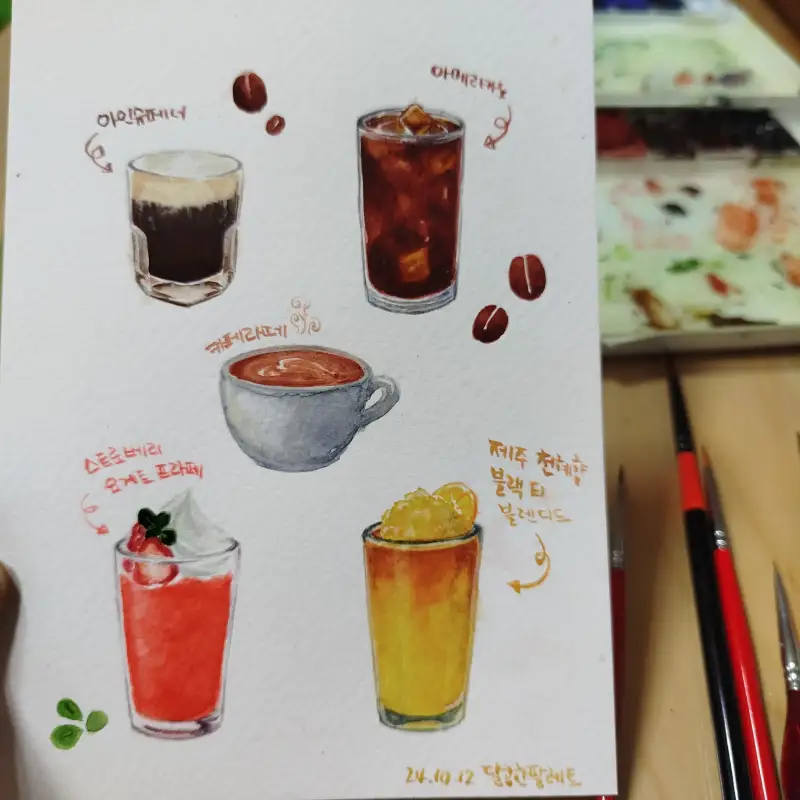 아인슈페너
아메리카노
카페라떼
스트로베리
요거트 프라페
제주 천혜향
블랙 티
블렌디드
24.10.12 달콤한팔레트